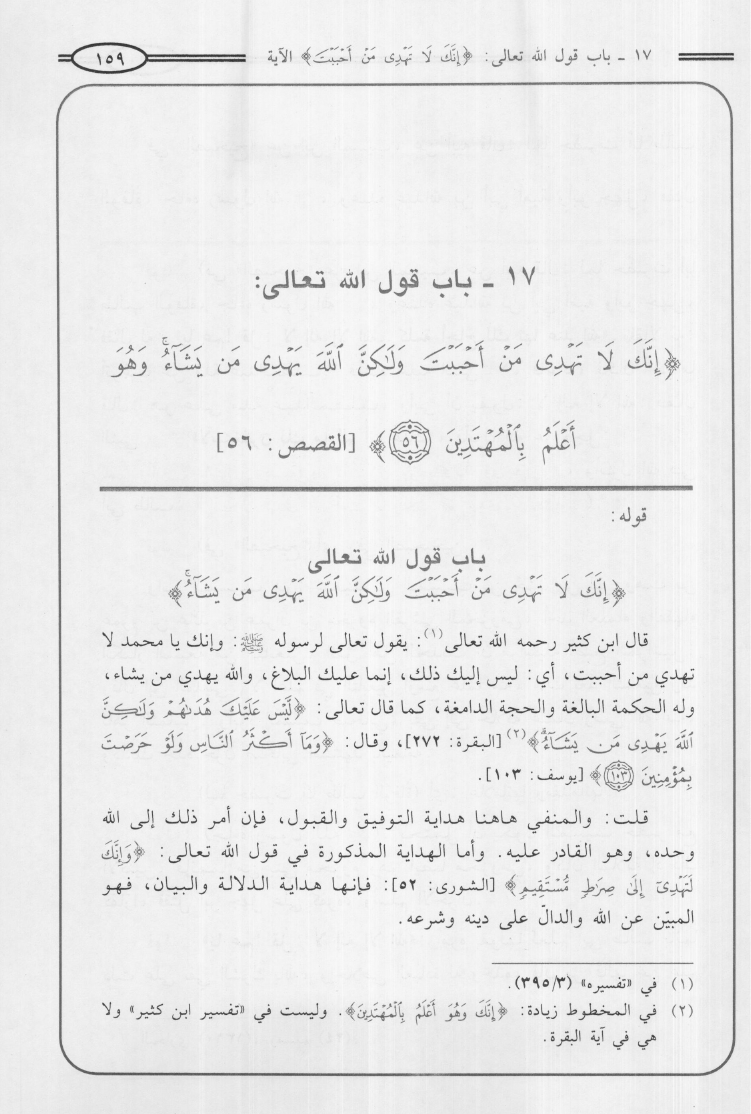 ١٧ ـ باب قول الله تعالى: ﴿إِنَّكَ لَا تَهْدِى مَنْ أَحْبَبْتَ﴾ الآية ١٥٩
١٧ ـ باب قول الله تعالى:
﴿إِنَّكَ لَا تَهْدِى مَنْ أَحْبَبْتَ وَلَٰكِنَّ ٱللَّهَ يَهْدِى مَن يَشَآءُ ۚ وَهُوَ
أَعْلَمُ بِٱلْمُهْتَدِينَ ۝٥٦﴾ [القصص: ٥٦]
قوله:
باب قول الله تعالى
﴿إِنَّكَ لَا تَهْدِى مَنْ أَحْبَبْتَ وَلَٰكِنَّ ٱللَّهَ يَهْدِى مَن يَشَآءُ ۚ﴾
قال ابن كثير رحمه الله تعالى(١): يقول تعالى لرسوله ﷺ: وإنك يا محمد لا
تهدي من أحببت، أي: ليس إليك ذلك، إنما عليك البلاغ، والله يهدي من يشاء،
وله الحكمة البالغة والحجة الدامغة، كما قال تعالى: ﴿لَّيْسَ عَلَيْكَ هُدَىٰهُمْ وَلَٰكِنَّ
ٱللَّهَ يَهْدِى مَن يَشَآءُ ۗ﴾(٢) [البقرة: ٢٧٢]، وقال: ﴿وَمَآ أَكْثَرُ ٱلنَّاسِ وَلَوْ حَرَصْتَ
بِمُؤْمِنِينَ ۝١٠٣﴾ [يوسف: ١٠٣].
قلت: والمنفي هاهنا هداية التوفيق والقبول، فإن أمر ذلك إلى الله
وحده، وهو القادر عليه. وأما الهداية المذكورة في قول الله تعالى: ﴿وَإِنَّكَ
لَتَهْدِىٓ إِلَىٰ صِرَٰطٍ مُّسْتَقِيمٍ﴾ [الشورى: ٥٢]: فإنها هداية الدلالة والبيان، فهو
المبيّن عن الله والدالّ على دينه وشرعه.
(١) في «تفسيره» (٣٩٥/٣).
(٢) في المخطوط زيادة: ﴿إِنَّكَ وَهُوَ أَعْلَمُ بِٱلْمُهْتَدِينَ﴾. وليست في «تفسير ابن كثير» ولا
هي في آية البقرة.